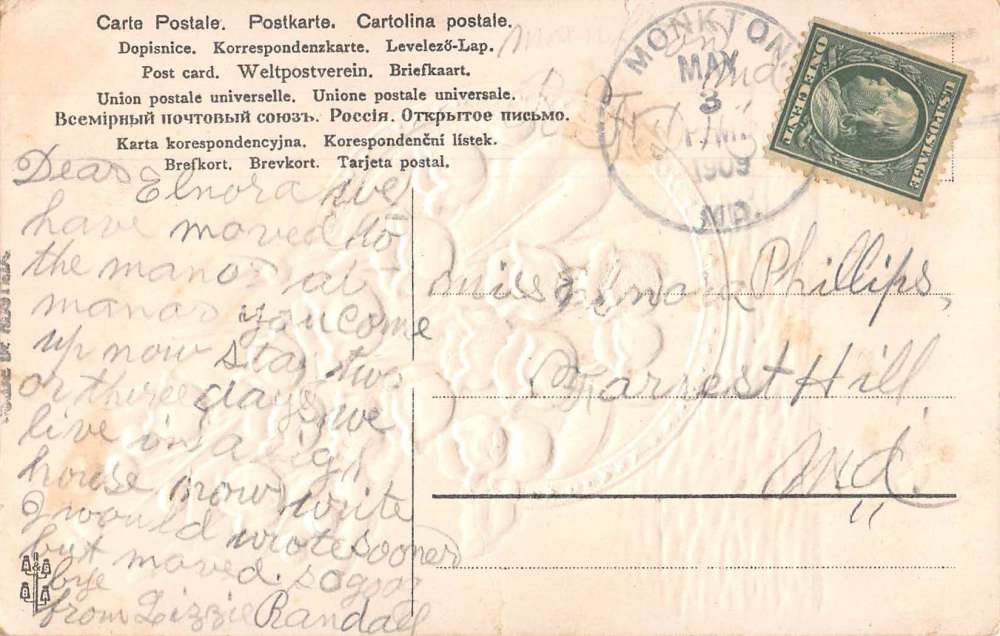 Carte Postale. Postkarte. Cartolina postale.
Dopisnice. Korrespondenzkarte. Levelező-Lap.
Post card. Weltpostverein. Briefkaart.
Union postale universelle. Unione postale universale.
Всемірный почтовый союзъ. Россія. Открытое письмо.
Karta korespondencyjna. Korespondenční lístek.
Brefkort. Brevkort. Tarjeta postal.
MONKTON
MAY
3
1909
MD.
U.S. POSTAGE
ONE CENT
Dear Elnora we
have moved to
the manor at
manor you come
up now stay two
or three days we
live in a big
house now write
I would wrote sooner
but moved. so good
bye
from Lizzie Randall
miss Elnora Phillips,
Forrest Hill
Md.